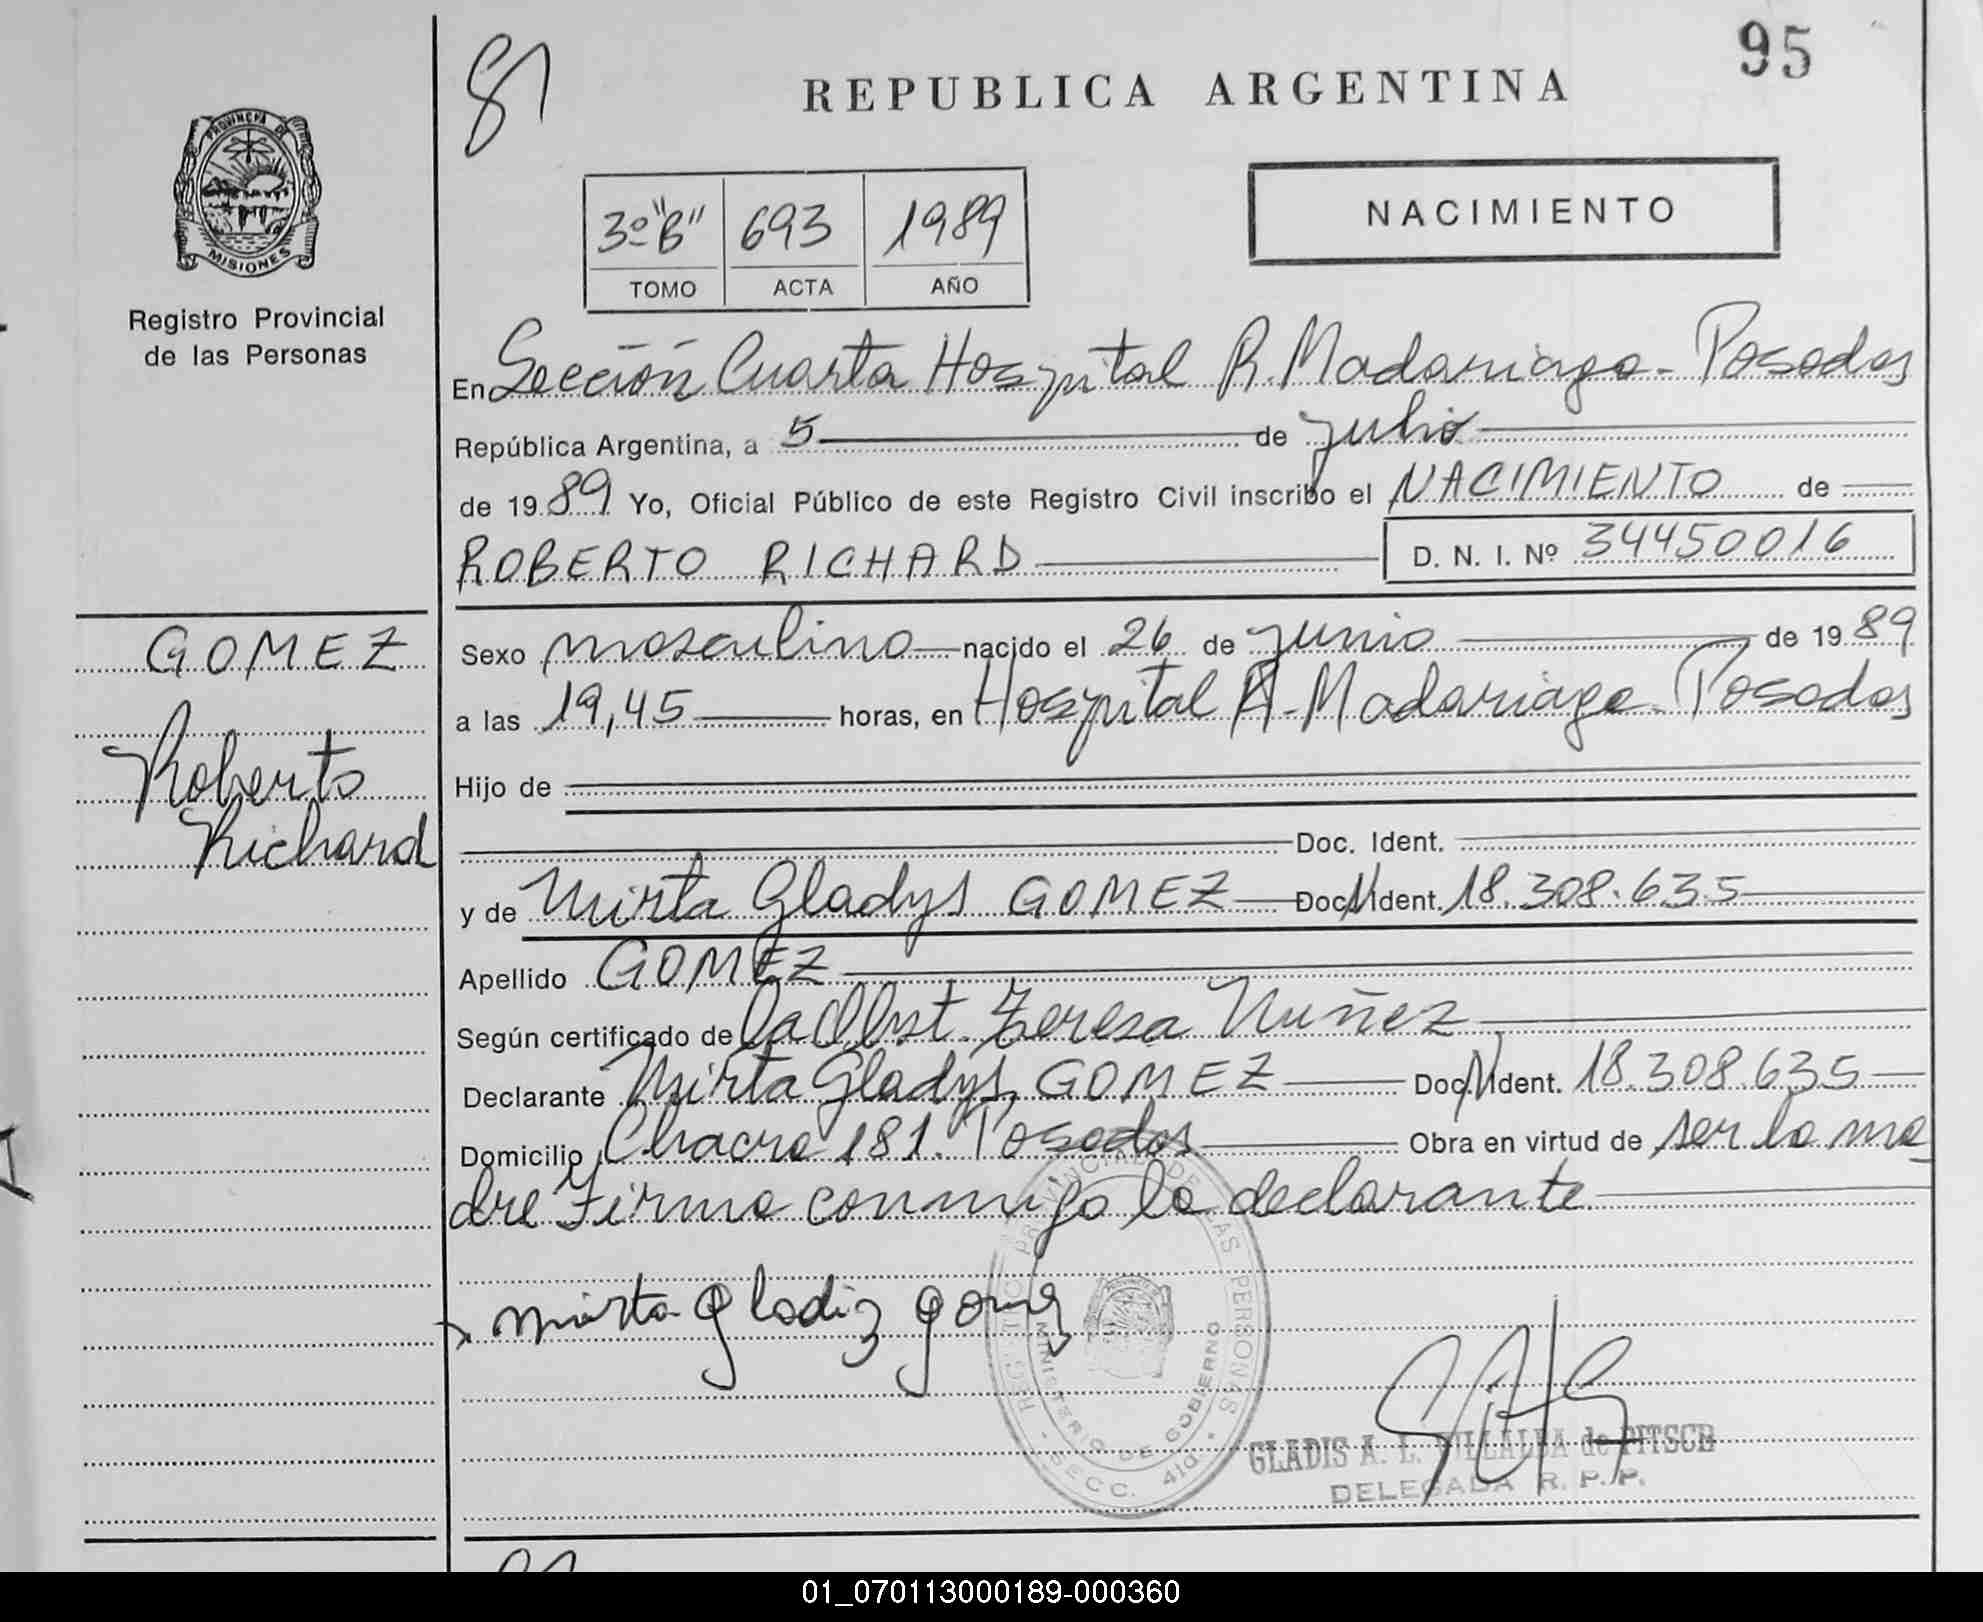 95
81
REPUBLICA ARGENTINA
PROVINCIA DE
MISIONES
Registro Provincial
de las Personas
3º "B" 693 1989
TOMO ACTA AÑO
NACIMIENTO
En Sección Cuarta Hospital R. Madariaga - Posadas
República Argentina, a 5 de julio
de 1989 Yo, Oficial Público de este Registro Civil inscribo el NACIMIENTO de
ROBERTO RICHARD D. N. I. Nº 34450016
GOMEZ
Roberto
Richard
Sexo masculino nacido el 26 de junio de 1989
a las 19,45 horas, en Hospital R. Madariaga - Posadas
Hijo de
Doc. Ident.
y de Mirta Gladys GOMEZ Doc. Ident. 18.308.635
Apellido GOMEZ
Según certificado de la Obst. Teresa Nuñez
Declarante Mirta Gladys GOMEZ Doc. Ident. 18.308.635
Domicilio Chacra 181. Posadas Obra en virtud de ser la ma
dre Firma conmigo la declarante
mirta Gladiz gomez
REGISTRO PROVINCIAL DE LAS PERSONAS
MINISTERIO DE GOBIERNO
SECC. 4ta.
GLADIS A. L. VILLALBA de
DELEGADA R. P. P.
01_070113000189-000360